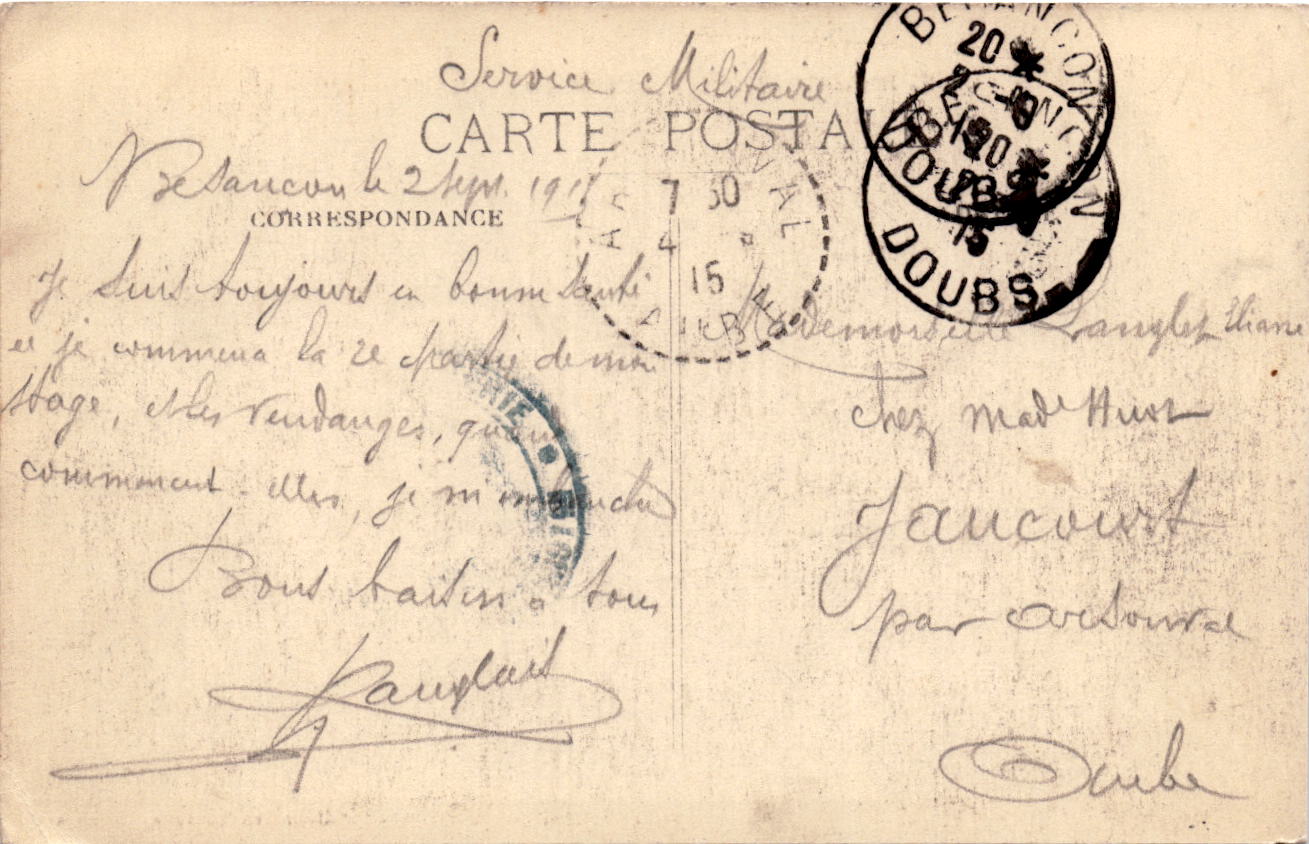 Service Militaire
CARTE POSTALE
Besancon le 2 Sept. 1915
CORRESPONDANCE
Je suis toujours en bonne santé
et je commence la 2e partie de mon
stage, et les vendanges, quand
commencent-elles, je m'embauche
Bons baisers à tous
Langlait
Mademoiselle Langlet Eliane
chez Made Huot
Jaucourt
par Arsonval
Aube
BESANCON
20 *
2 - 9
15
DOUBS
BESANCON
20 *
2 - 9
15
DOUBS
ARSONVAL
7 30
15
AUBE
RIE